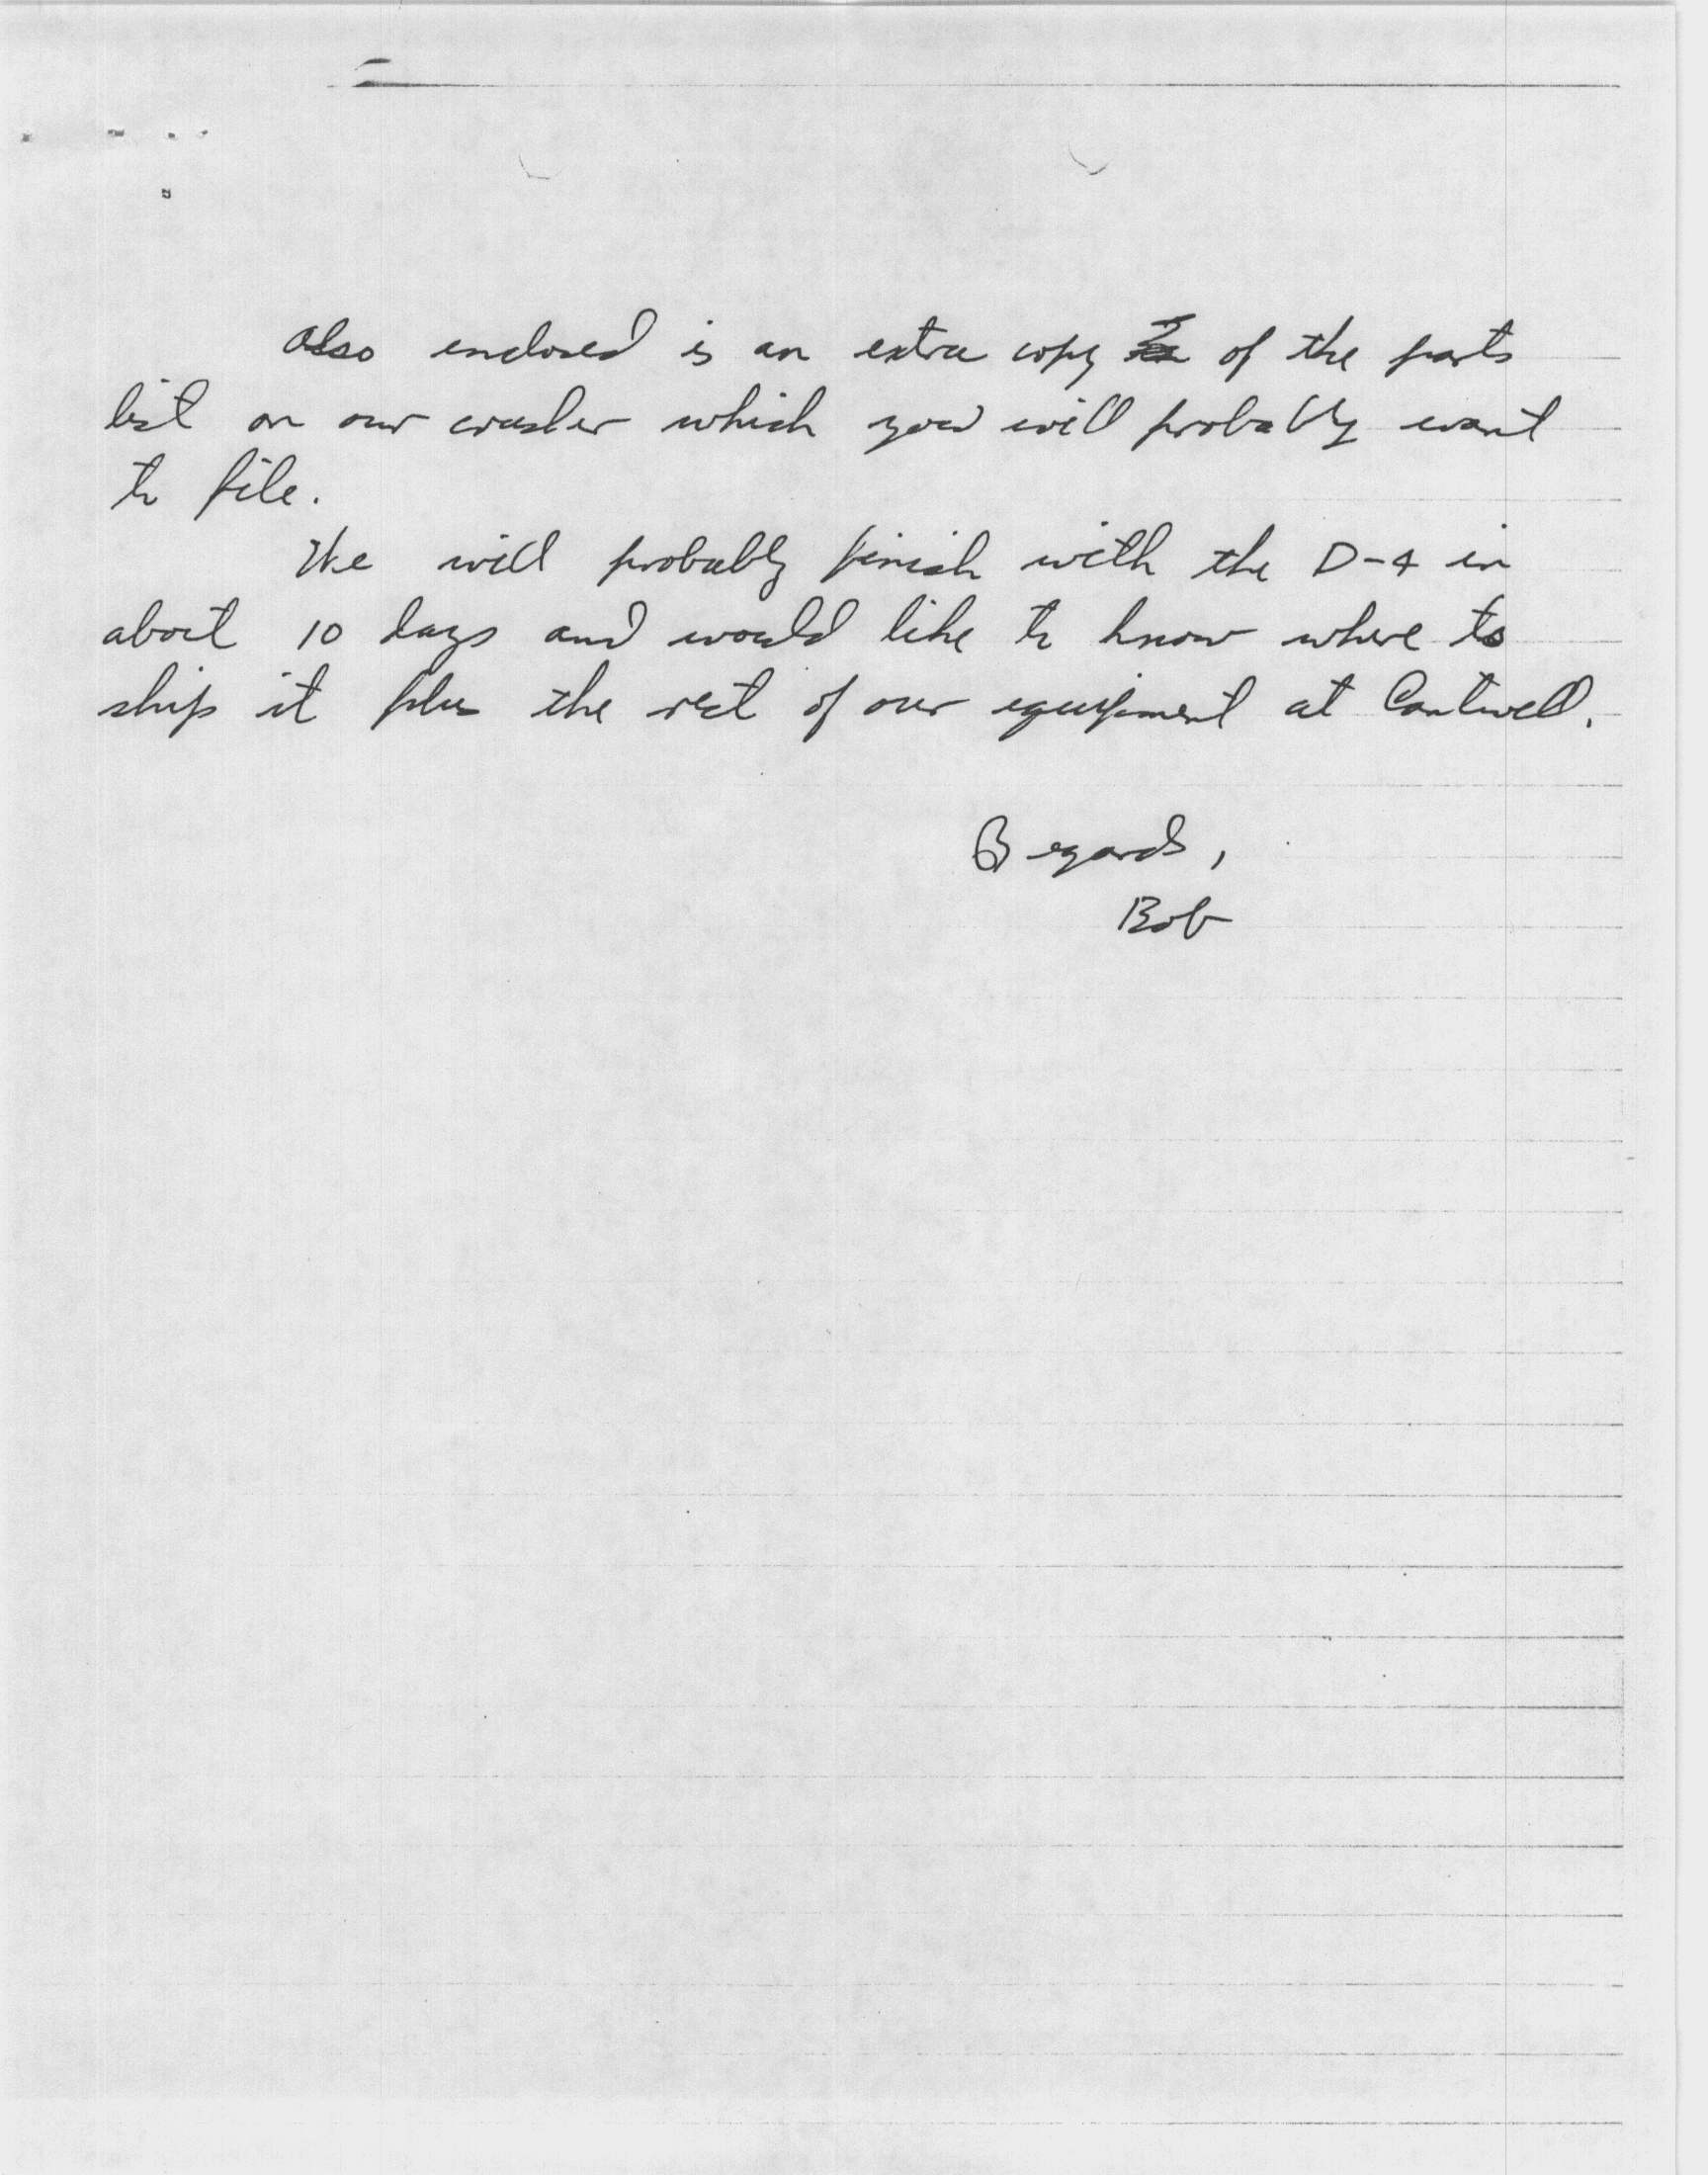 Also enclosed is an extra copy of the parts
list on our crusher which you will probably want
to file.
We will probably finish with the D-4 in
about 10 days and would like to know where to
ship it plus the rest of our equipment at Cantwell.
Regards,
Bob